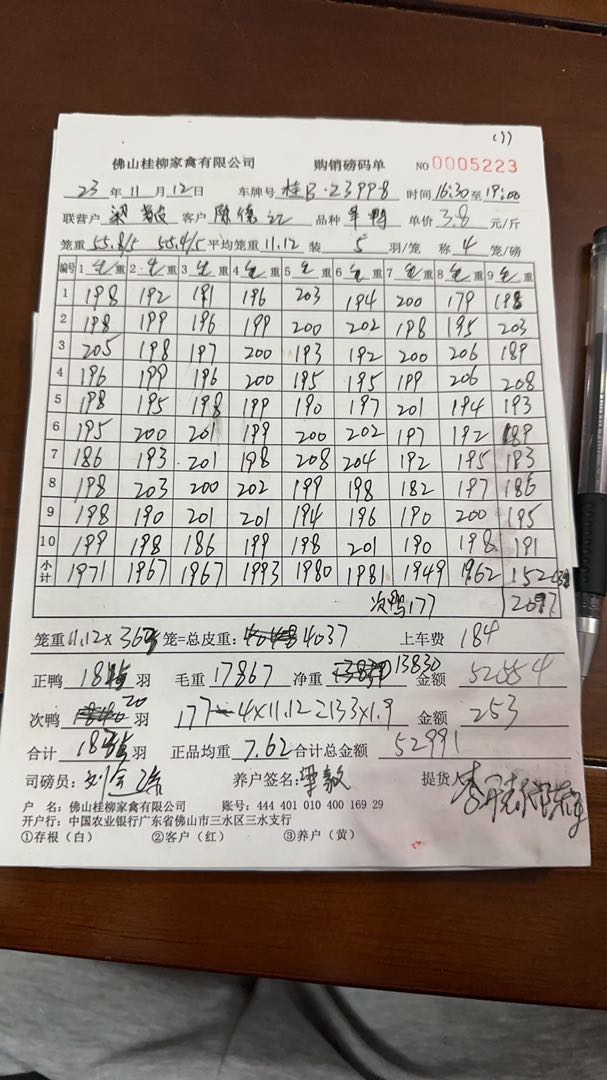 (1)
佛山桂柳家禽有限公司 购销磅码单 NO 0005223
23年11月12日 车牌号 桂B·23998 时间16:30至19:00
联营户 梁 客户 陈 品种 鸭 单价3.8元/斤
笼重55.8/5 55.4/5平均笼重11.12 装 5 羽/笼 称 4 笼/磅
编号 1 毛重 2 毛重 3 毛重 4 毛重 5 毛重 6 毛重 7 毛重 8 毛重 9 毛重
1 198 192 191 196 203 194 200 179 198
2 198 199 196 199 200 202 198 195 203
3 205 198 197 200 193 192 200 206 189
4 196 199 196 200 195 195 199 206 208
5 198 195 198 199 190 197 201 194 193
6 195 200 201 199 200 202 197 192 189
7 186 193 201 198 208 204 192 195 193
8 198 203 200 202 199 198 182 197 186
9 198 190 201 201 194 196 190 200 195
10 199 198 186 199 198 201 190 198 191
小计 1971 1967 1967 1993 1980 1981 1949 1962
次鸭177 2097
笼重11.12× 笼=总皮重: 4037 上车费 184
正鸭 羽 毛重 17867 净重 13830 金额 52554
次鸭 20 羽 177-4×11.12=133×1.9 金额 253
合计 羽 正品均重 7.62 合计总金额 52991
司磅员: 养户签名: 梁 提货人: 李
户 名: 佛山桂柳家禽有限公司 账号: 444 401 010 400 169 29
开户行: 中国农业银行广东省佛山市三水区三水支行
①存根(白) ②客户(红) ③养户(黄)